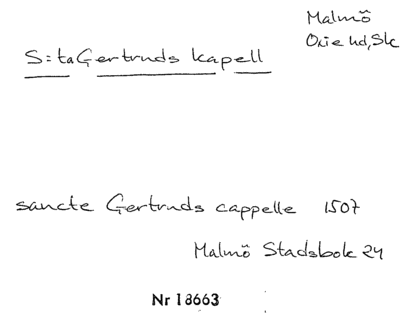 Malmö
Oxie hd, Sk
S:ta Gertruds kapell
sancte Gertruds cappelle 1507
Malmö Stadsbok 24
Nr 18663